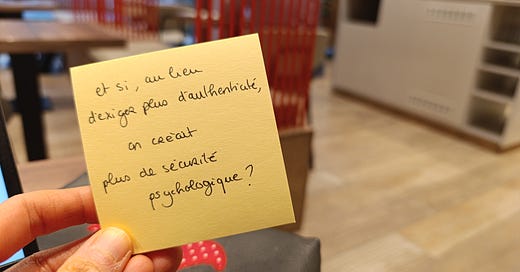 et si, au lieu
d'exiger plus d'authenticité,
on créait
plus de sécurité
psychologique ?